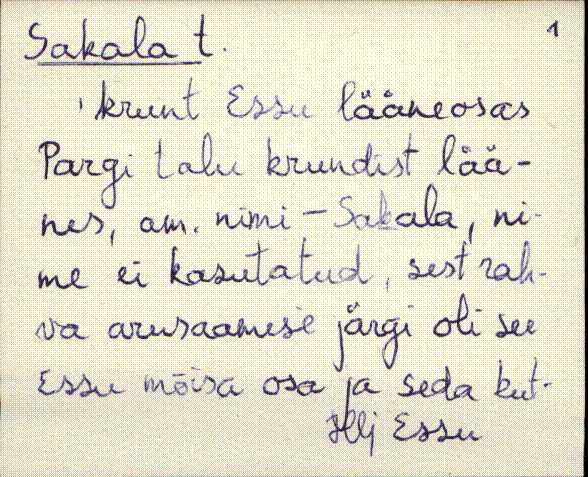 Sakala t. 1
krunt Essu lääneosas
Pargi talu krundist lää-
nes, am. nimi - Sakala, ni-
me ei kasutatud, sest rah-
va arusaamise järgi oli see
Essu mõisa osa ja seda kut-
Hlj Essu